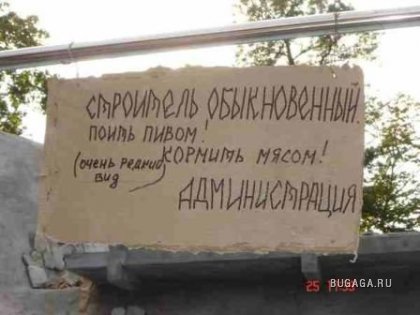 СТРОИТЕЛЬ ОБЫКНОВЕННЫЙ.
ПОИТЬ ПИВОМ!
КОРМИТЬ МЯСОМ!
(ОЧЕНЬ РЕДКИЙ
ВИД)
АДМИНИСТРАЦИЯ
BUGAGA.RU